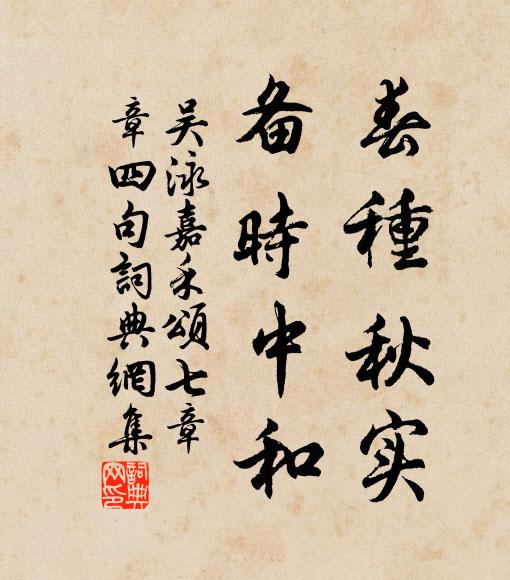 春種秋实
备時中和
吴泳嘉禾頌七章
章四句詞典網集
詞典网印